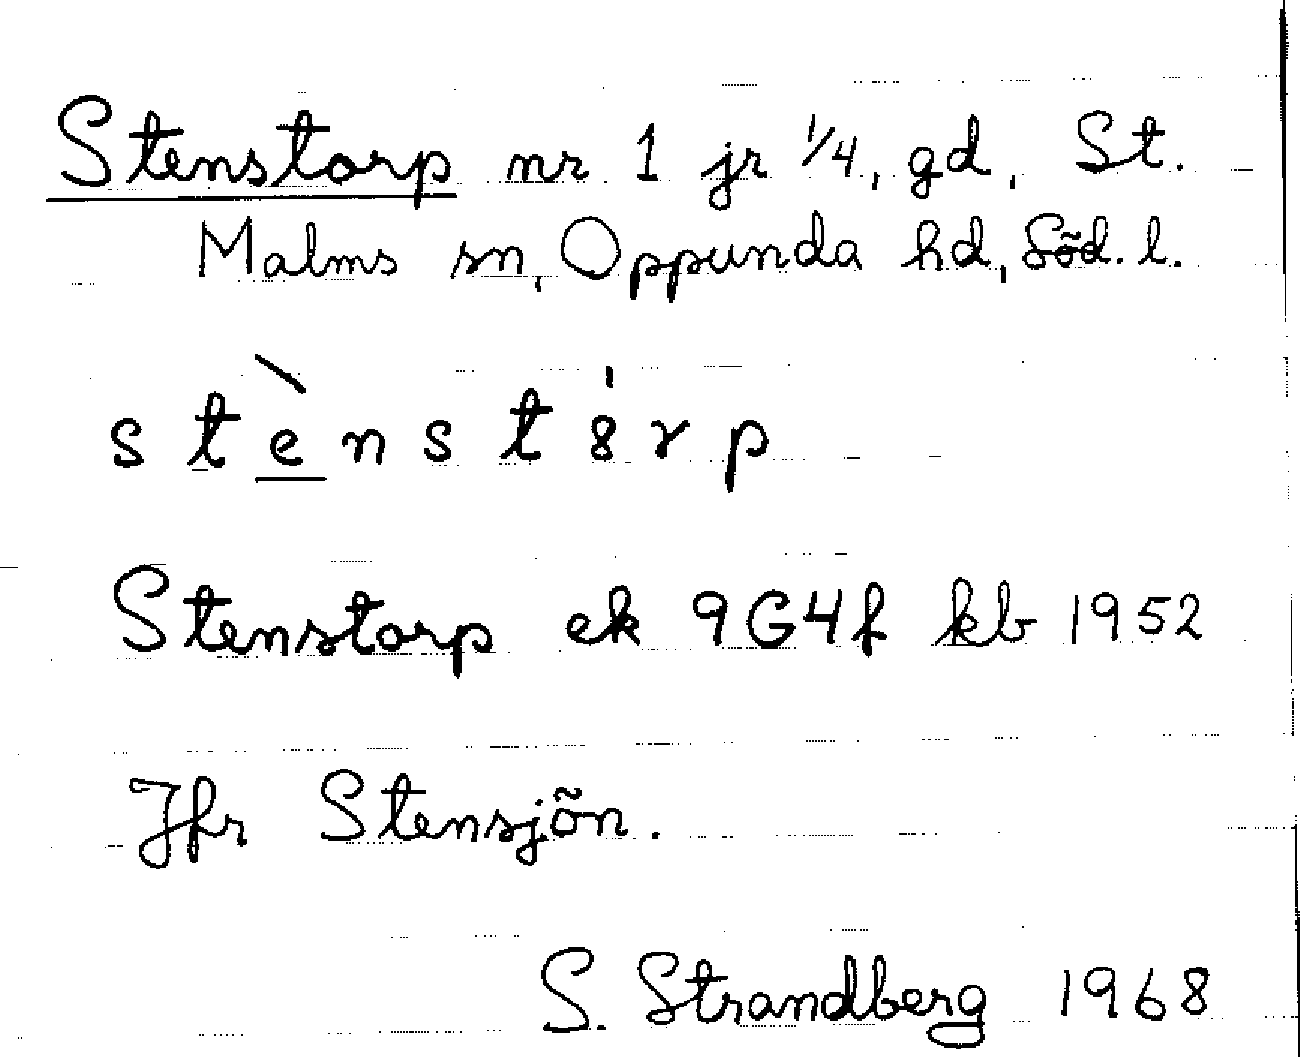 Stenstorp nr 1 jr 1/4, gd, St.
Malms sn, Oppunda hd, Söd. l.
stènst8rp
Stenstorp ek 9G4f kb 1952
Jfr Stensjön.
S. Strandberg 1968